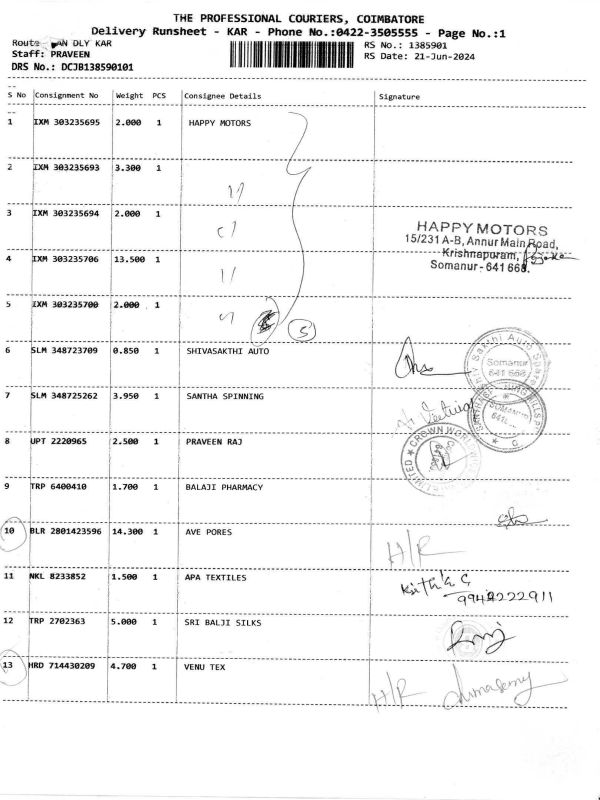 THE PROFESSIONAL COURIERS, COIMBATORE
Delivery Runsheet - KAR - Phone No.:0422-3505555 - Page No.:1
Route DLY KAR
Staff: PRAVEEN
DRS No.: DCJB138590101
RS No.: 1385901
RS Date: 21-Jun-2024
S No Consignment No Weight PCS Consignee Details Signature
1 IXM 303235695 2.000 1 HAPPY MOTORS
2 IXM 303235693 3.300 1
3 IXM 303235694 2.000 1
HAPPY MOTORS
15/231 A-B, Annur Main Road,
Krishnapuram,
Somanur - 641 668.
4 IXM 303235706 13.500 1
5 IXM 303235700 2.000 1
5
6 SLM 348723709 0.850 1 SHIVASAKTHI AUTO
Somanur
641 668
7 SLM 348725262 3.950 1 SANTHA SPINNING
SOMANUR
8 UPT 2220965 2.500 1 PRAVEEN RAJ
9 TRP 6400410 1.700 1 BALAJI PHARMACY
10 BLR 2801423596 14.300 1 AVE PORES
H/R
11 NKL 8233852 1.500 1 APA TEXTILES
12 TRP 2702363 5.000 1 SRI BALJI SILKS
13 HRD 714430209 4.700 1 VENU TEX
H/R